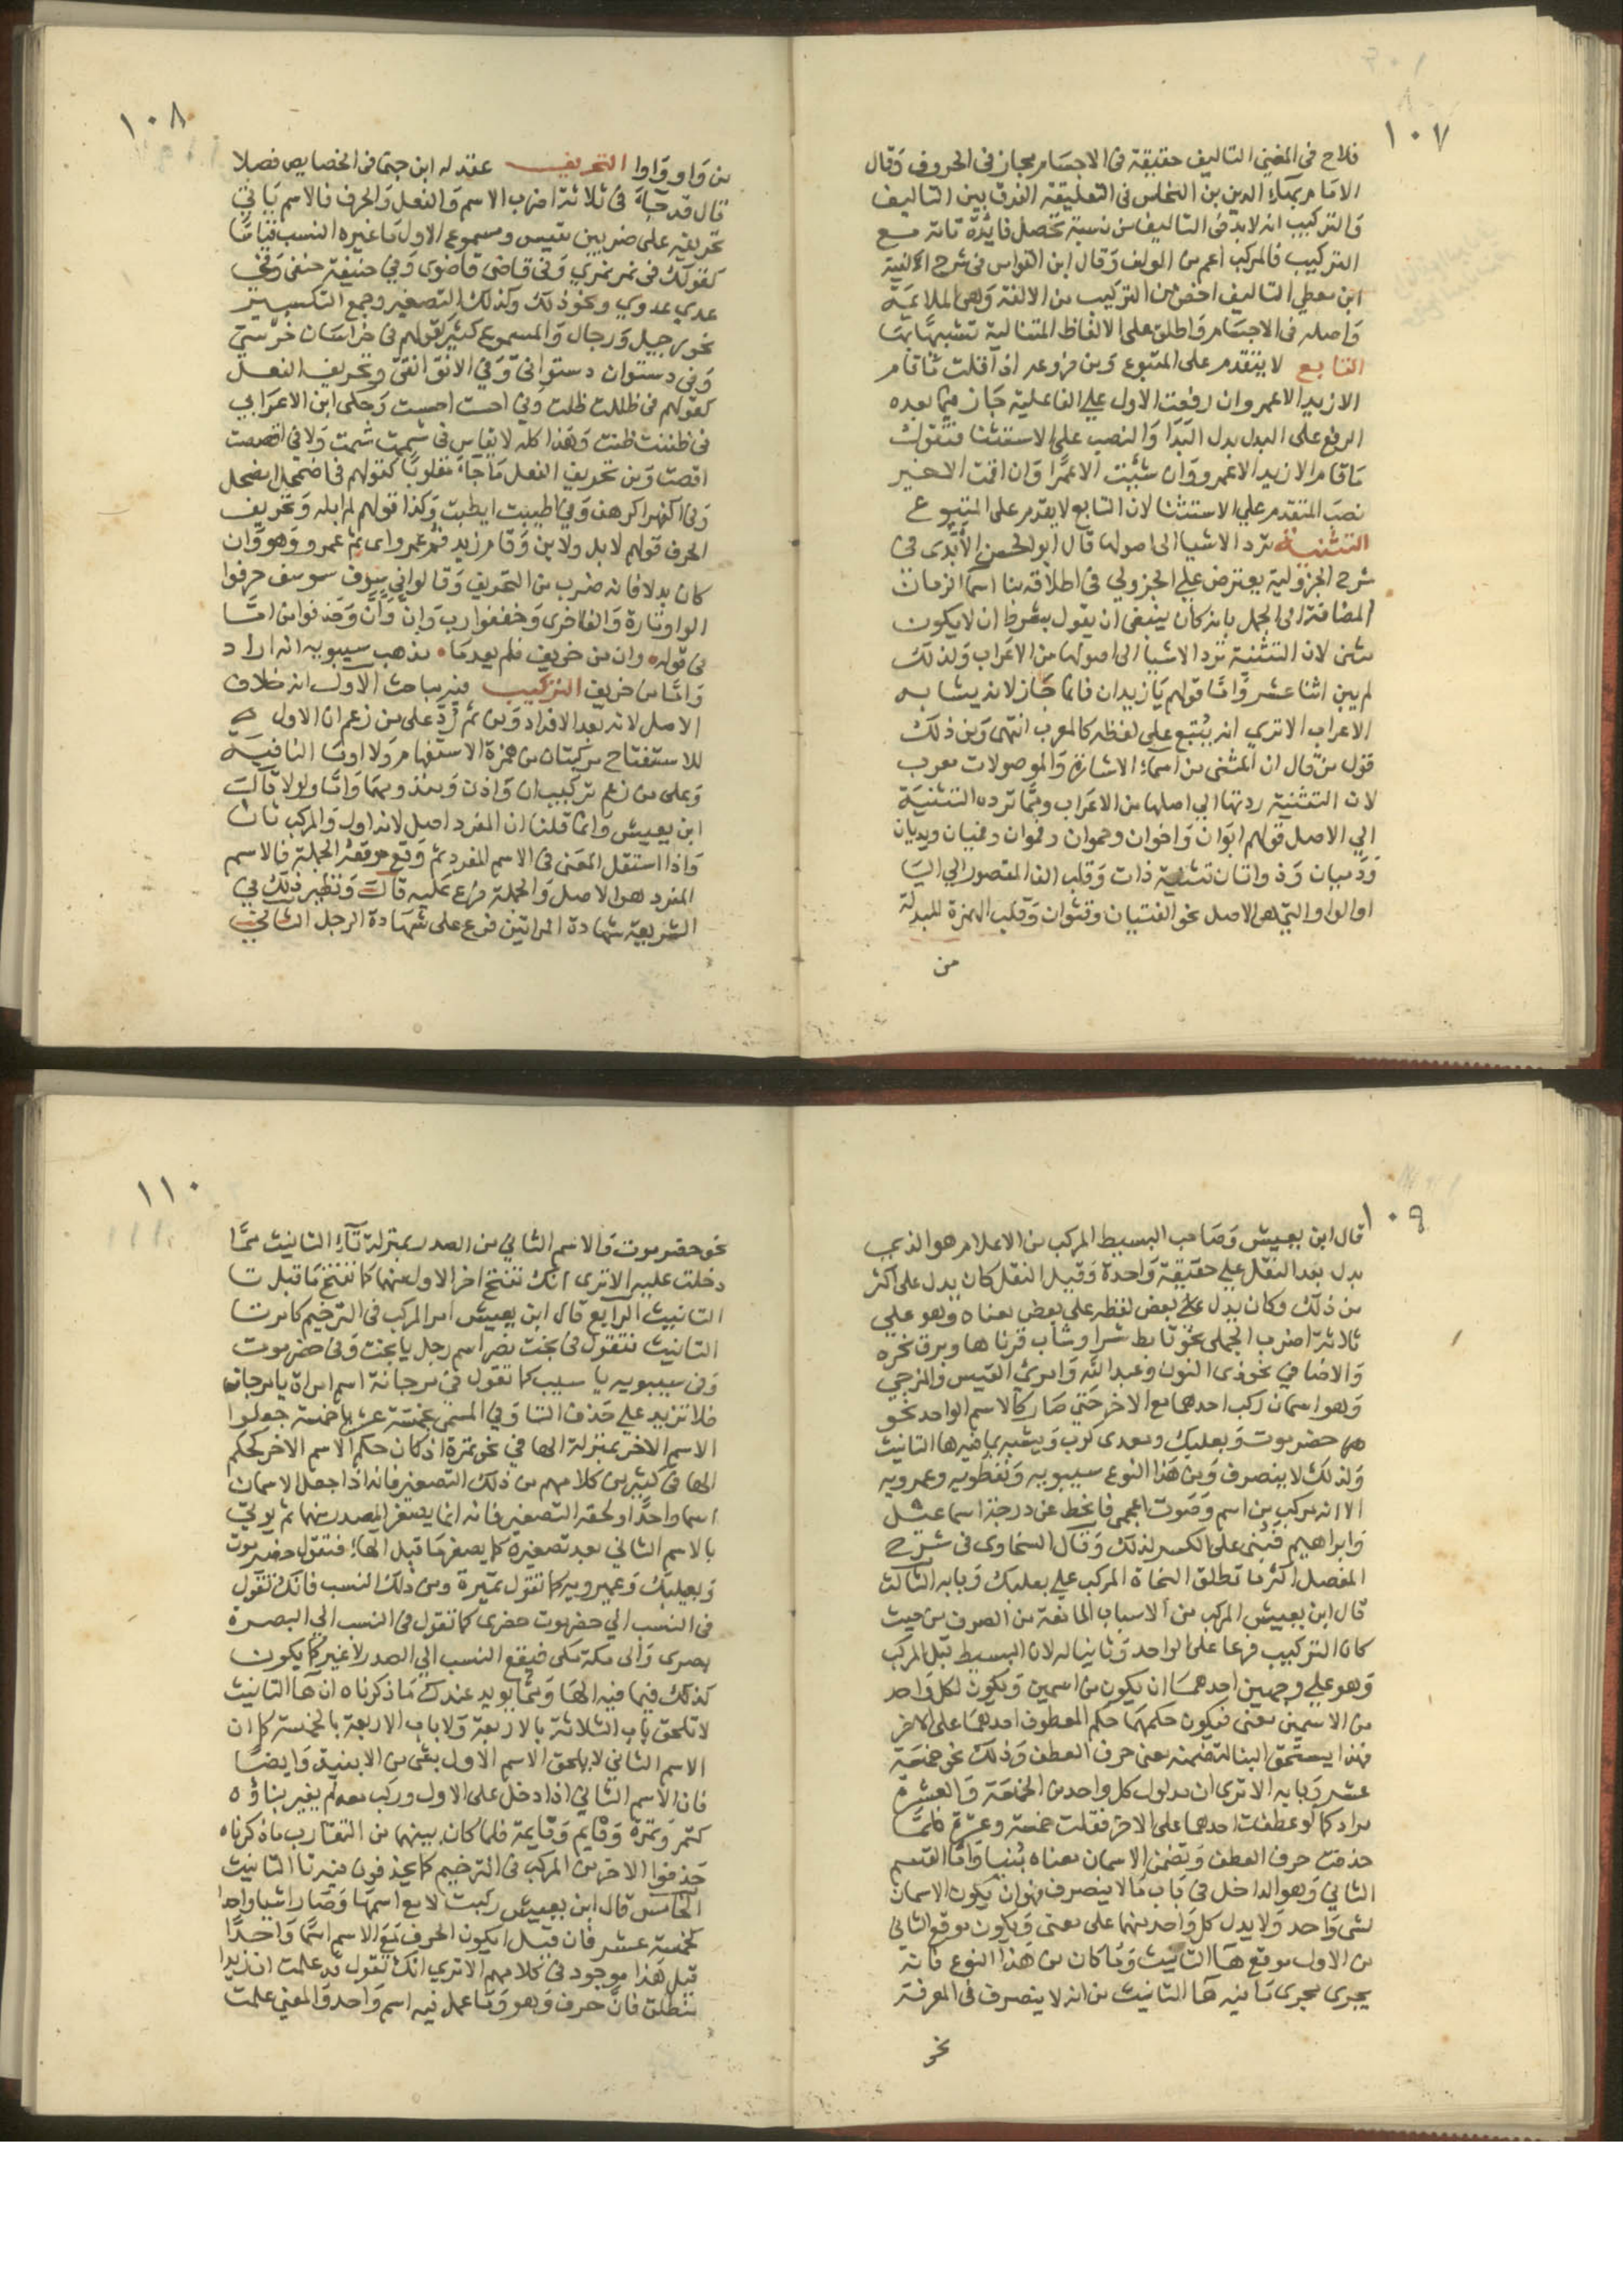 ١٠٧
فلاح فى المغني التاليف حقيقة فى الاجسام مجاز فى الحروف وقال
الامام بهاء الدين بن النحاس فى التعليقة الفرق بين التاليف
والتركيب انه لابد فى التاليف من نسبة تحصل فايدة تامة مع
التركيب فالمركب اعم من المولف وقال ابن القواس فى شرح الالفية
ابن معطي التاليف اخص من التركيب من الالفة وهى الملايمة
واصله فى الاجسام واطلق على الالفاظ المتتالية تشبيها بها
التابع لا يتقدم على المتبوع ومن فروعه اذا قلت ما قام
الا زيد الا عمرو ان رفعت الاول علي الفاعلية جاز فيما بعده
الرفع على البدل بدل البدا والنصب على الاستثنا فتقول
ما قام الا زيد الا عمرو وان شئت الا عمرا وان اقمت الاخير
نصب المتقدم علي الاستثنا لان التابع لا يقدم على المتبوع
التثنية ترد الاشيا الى اصولها قال ابو الحسن الأبّدى فى
شرح الجزولية يعترض علي الجزولي فى اطلاقه بنا اسما الزمان
المضافة الى الجمل بانه كان ينبغى ان يقول بشرط ان لا يكون
مثنى لان التثنية ترد الاشيا الى اصولها من الاعراب ولذلك
لم يبن اثنا عشر واما قولهم يا زيدان فانما جاز لانه يشابه
الاعراب الا ترى انه يُتبع على لفظه كالمعرب انتهى ومن ذلك
قول من قال ان المثنى من اسماء الاشارة والموصولات معرب
لان التثنية ردتها الي اصلها من الاعراب ومما ترده التثنية
الي الاصل قولهم ابوان واخوان وحموان وفموان وفميان ويديان
ودميان وذواتان تثنية ذات وقلب الف المقصور الي اليا
او الواو التى هى الاصل نحو الفتيان وقنوان وقلب الهمزة المبدلة
من
١٠٨
من واو واوا التحريف عقد له ابن جنى فى الخصايص فصلا
قال قد جاء فى ثلاثة اضرب الاسم والفعل والحرف فالاسم ياتى
تحريفه على ضربين مقيس ومسموع الاول ما غيره النسب قياسا
كقولك فى نمر نمري وفى قاضى قاضوى وفي حنيفة حنفى وفي
عدي عدوي ونحو ذلك وكذلك التصغير وجمع التكسير
نحو رجيل ورجال والمسموع كثير كقولهم فى خراسان خرستي
وفى دستوان دستوانىّ وفي الافق افقىّ وتحريف الفعل
كقولهم فى ظللت ظلت وفي احسست احست وحكى ابن الاعرابي
فى ظننت ظنت وهذا كله لا يقاس فى شممت شمت ولا فى اقصصت
اقصت ومن تحريف الفعل ما جاء مقلوبا كقولهم فى اضمحل امضحل
وفى اكفهر اكرهف وفي اطيبت ايطبت وكذا قولهم لم ابله وتحريف
الحرف قولهم لا بل ولا بن وقام زيد فُم عمرو اى ثم عمرو وهو وان
كان بدلا فانه ضرب من التحريف وقالوا في سوف سو سف حرفوا
الواو تارة والفا اخرى وخففوا رب وان وأنّ وحذفوا من امّا
فى قوله وان من خريف فلم يعدما مذهب سيبويه انه اراد
واما من خريف التركيب فيه مباحث الاول انه خلاف
الاصل لانه بعد الافراد ومن ثم رُدّ على من زعم ان الاول
للاستفتاح مركبتان من همزة الاستفهام ولا او ما النافية
وعلى من زعم تركيب ان واذن ومنذ ومهما واما ولولا قال
ابن يعيش وانما قلنا ان المفرد اصل لانه اول والمركب ثان
واذا استقل المعنى فى الاسم المفرد ثم وقع موقعه الجملة فالاسم
المفرد هو الاصل والجملة فرع عليه قال ونظير ذلك في
الشريعة شهادة المراتين فرع على شهادة الرجل الثانى
١٠٩
قال ابن يعيش وصاحب البسيط المركب من الاعلام هو الذي
يدل بعد النقل علي حقيقة واحدة وقبل النقل كان يدل على اكثر
من ذلك وكان يدل بعض لفظه على بعض معناه وهو علي
ثلاثة اضرب الجملى نحو تابط شرا وشاب قرناها وبرق نحره
والاضافي نحو ذى النون وعبد الله وامرئ القيس والمزجي
وهو اسمان ركب احدهما مع الاخر حتي صار كالاسم الواحد نحو
حضرموت وبعلبك ومعدى كرب ويشبه بما فيه هاء التانيث
ولذلك لا ينصرف ومن هذا النوع سيبويه ونفطويه وعمرويه
الا انه مركب من اسم وصوت اعجمى فانحط عن درجة اسماعيل
وابراهيم فبُنى على الكسر لذلك وقال السخاوى فى شرح
المفصل اكثر ما تطلق النحاة المركب علي بعلبك وبابه الثالث
قال ابن يعيش المركب من الاسباب المانعة من الصرف من حيث
كان التركيب فرعا على الواحد وثانيا له لان البسيط قبل المركب
وهو علي وجهين احدهما ان يكون من اسمين ويكون لكل واحد
من الاسمين معنى فيكون حكمهما حكم المعطوف احدهما على الاخر
فهذا يستحق البنا لتضمنه معنى حرف العطف وذلك نحو خمسة
عشر وبابه الا ترى ان مدلول كل واحد من الخمسة والعشرة
مراد كما لو عطفت احدهما على الاخر فقلت خمسة وعشرة فلما
حذفت حرف العطف وتضمن الاسمان معناه بُنيا واما القسم
الثاني وهو الداخل فى باب ما لا ينصرف فهو ان يكون الاسمان
لشى واحد ولا يدل كل واحد منهما على معنى ويكون موقع الثاني
من الاول موقع هاء التانيث وما كان من هذا النوع فانه
يجرى مجرى ما فيه هاء التانيث من انه لا ينصرف فى المعرفة
نحو
١١٠
نحو حضرموت فالاسم الثاني من الصدر بمنزلة تاء التانيث مما
دخلت عليه الا ترى انك تفتح اخر الاول منهما كما تفتح ما قبل تا
التانيث الرابع قال ابن يعيش امر المركب فى الترخيم كامر تا
التانيث فتقول فى بخت نصر اسم رجل يا بخت وفى حضرموت
وفى سيبويه يا سيب كما تقول فى مرجانة اسم امراة يا مرجان
فلا تزيد علي حذف التا وفي المسمى بخمسة عشر يا خمسة جعلوا
الاسم الاخر بمنزلة الها في نحو تمرة اذ كان حكم الاسم الاخر كحكم
الها فى كثير من كلامهم من ذلك التصغير فانه اذا جعل الاسمان
اسما واحدا ولحقه التصغير فانه انما يصغر الصدر منهما ثم يوتي
بالاسم الثاني بعد تصغيره كما يصغر ما قبل الهاء فتقول حضيرموت
وبعيلبك وعميرويه كما تقول تميرة ومن ذلك النسب فانك تقول
فى النسب الي حضرموت حضرى كما تقول فى النسب الي البصرة
بصرى والى مكة مكى فيقع النسب الي الصدر لا غير كما يكون
كذلك فيما فيه الها ومما يويد عندك ما ذكرناه ان هاء التانيث
لا تلحق باب الثلاثة بالاربعة ولا باب الاربعة بالخمسة كما ان
الاسم الثاني لا يلحق الاسم الاول بشى من الابنية وايضا
فان الاسم الثاني اذا دخل على الاول وركب معه لم يغير بناؤه
كتمر وتمرة وقايم وقايمة فلما كان بينهما من التقارب ما ذكرناه
حذفوا الاخر من المركب فى الترخيم كما يحذفون فيه تا التانيث
الخامس قال ابن يعيش ركبت لا مع اسمها وصارا شيا واحدا
كخمسة عشر فان قيل ايكون الحرف مع الاسم اسما واحدا
قيل هذا موجود فى كلامهم الا ترى انك تقول قد علمت ان زيدا
منطلق فانّ حرف وهو وما عمل فيه اسم واحد والمعني علمت